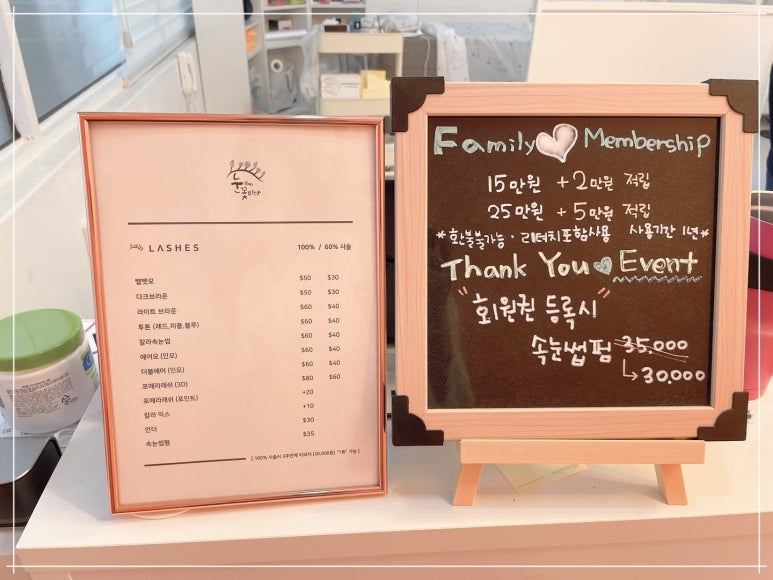 눈
꽃
피다
LASHES 100% / 60% 시술
벨벳모 $50 $30
다크브라운 $50 $30
라이트 브라운 $60 $40
투톤 (레드,퍼플,블루) $60 $40
칼라속눈썹 $60 $40
에어모 (인모) $60 $40
더블에어 (인모) $60 $40
포매라래쉬 (3D) $80 $60
포매라래쉬 (포인트) +20
칼라 믹스 +10
언더 $30
속눈썹펌 $35
[ 100% 시술시 3주안에 리터치 (30,000원) "1회" 가능 ]
Family Membership
15만원 +2만원 적립
25만원 +5만원 적립
*환불불가능 · 리터치포함사용 사용기간 1년*
Thank You Event
"회원권 등록시"
속눈썹펌 35.000
↳30.000